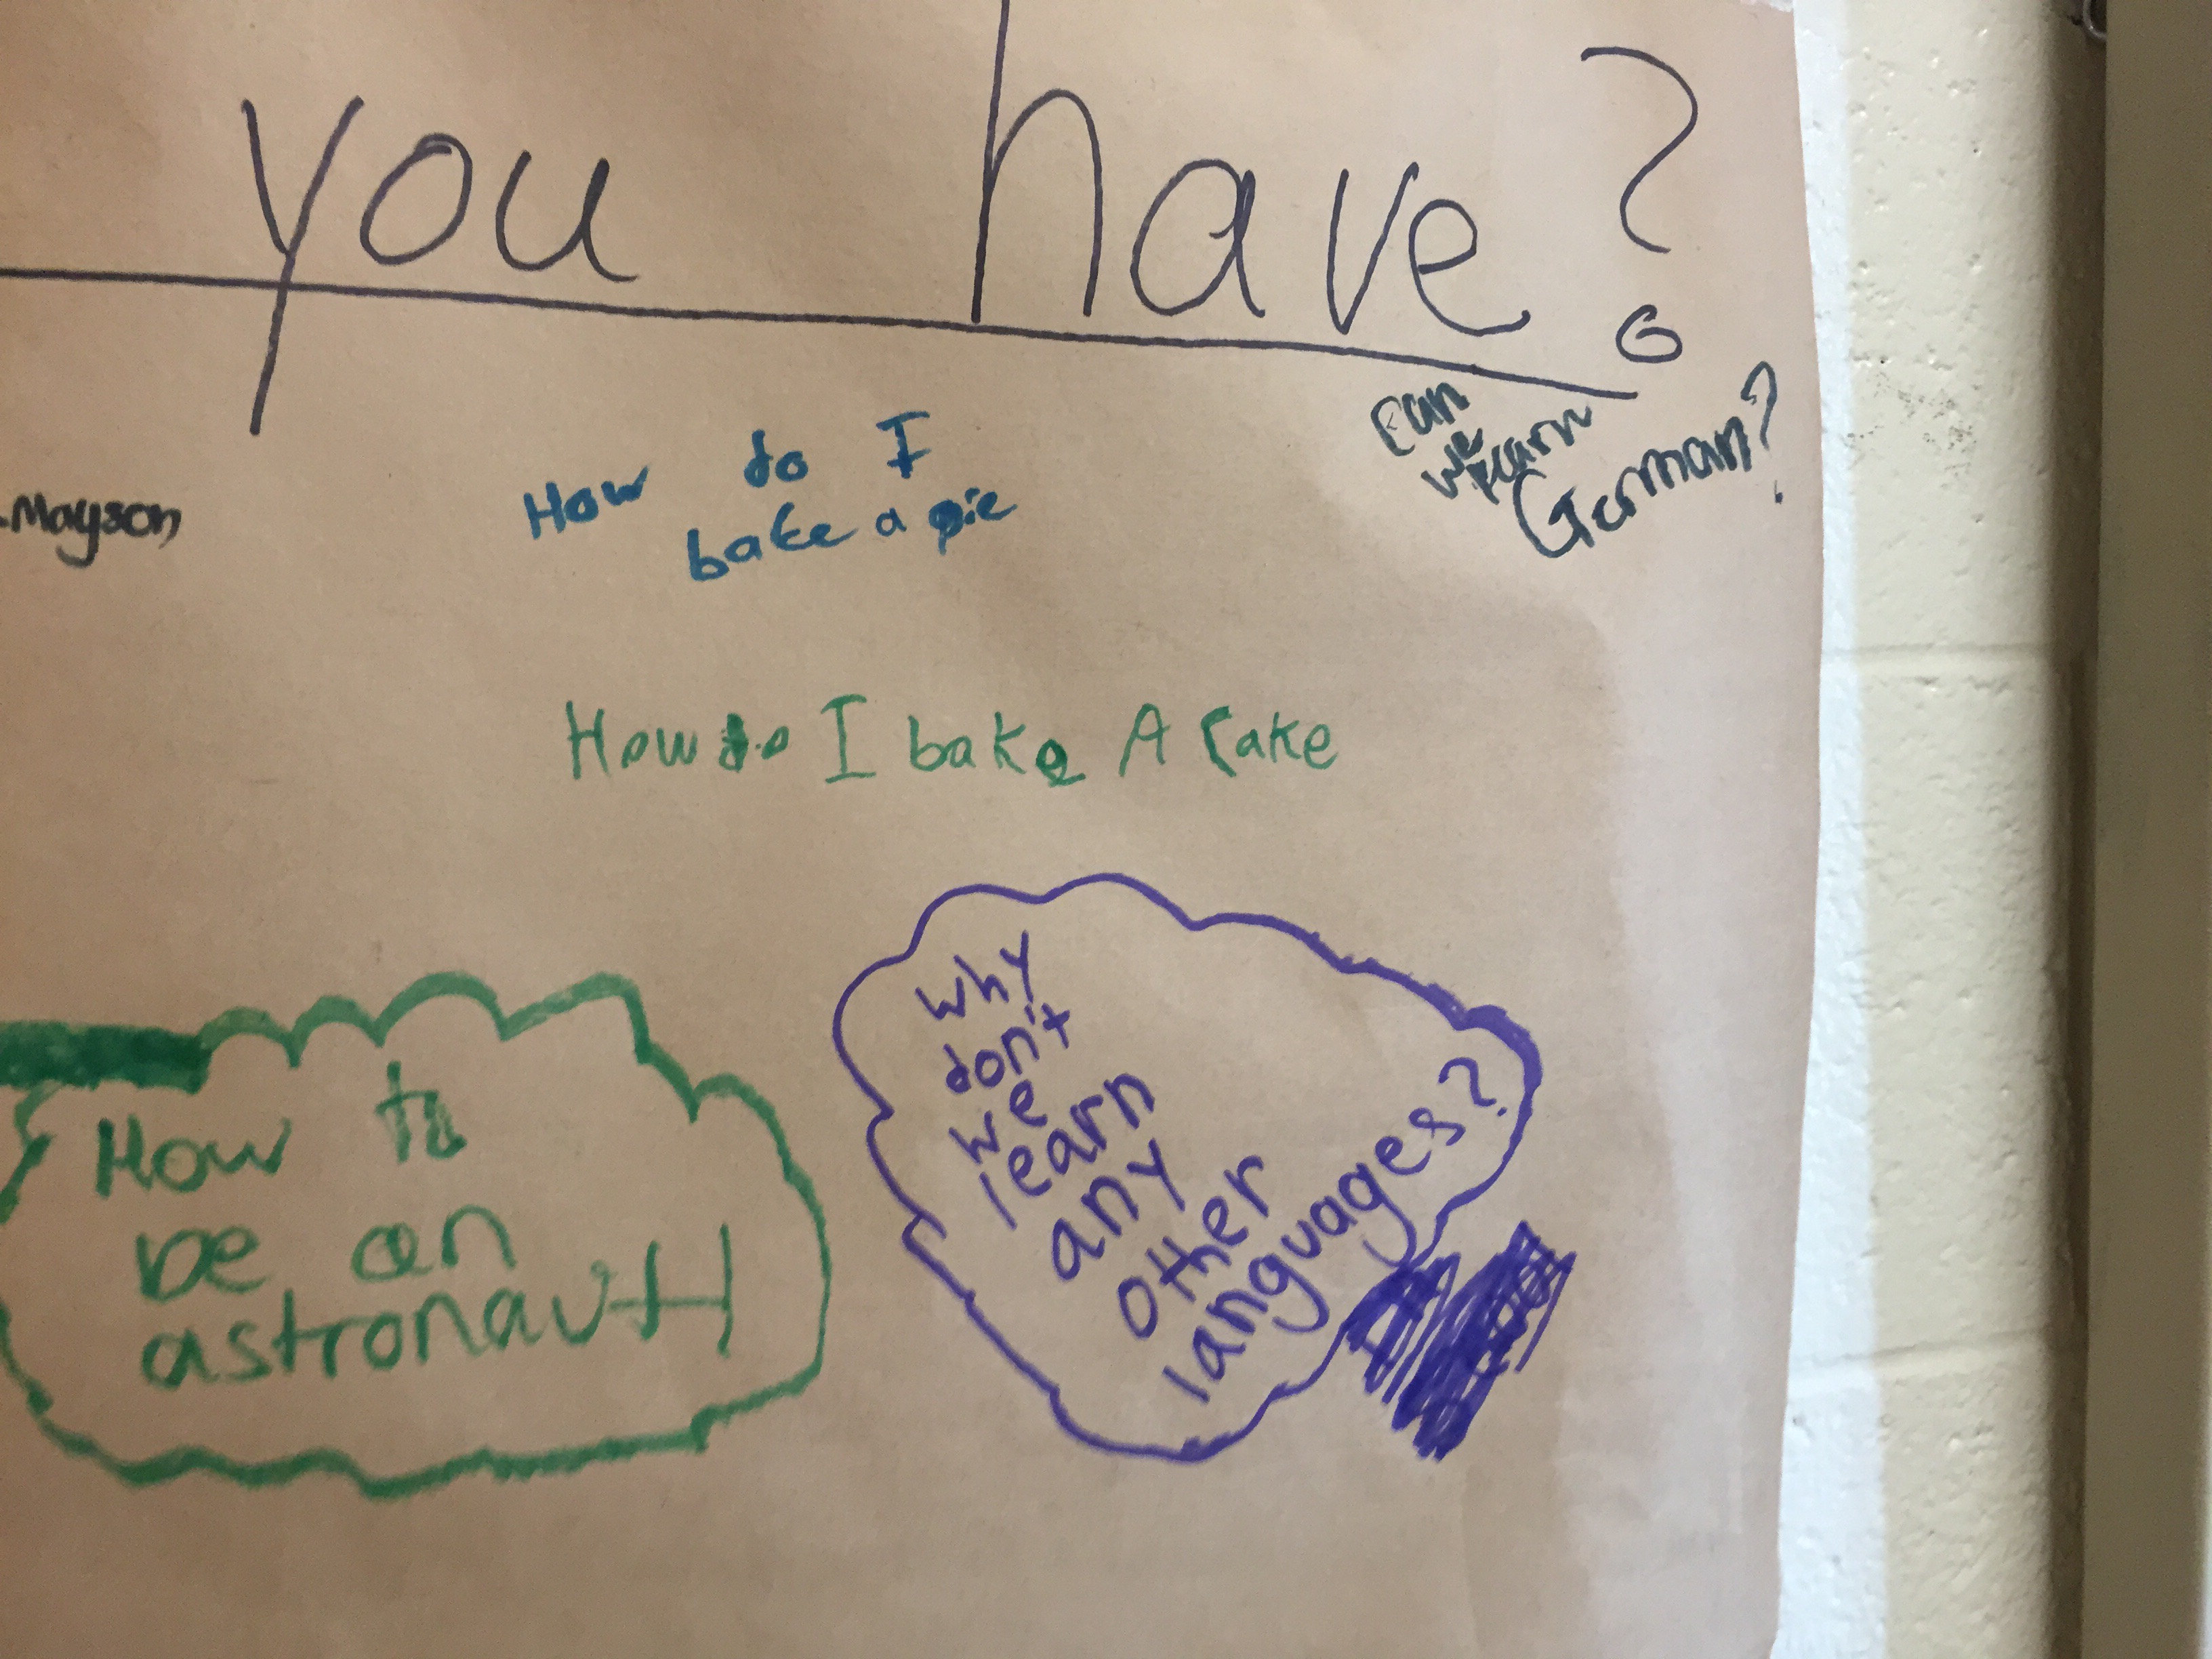 you have?
-Mayson
How do I
bake a pie
can
we learn
German?
How do I bake A cake
How to
be an
astronaut
why
don't
we
learn
any
other
languages?